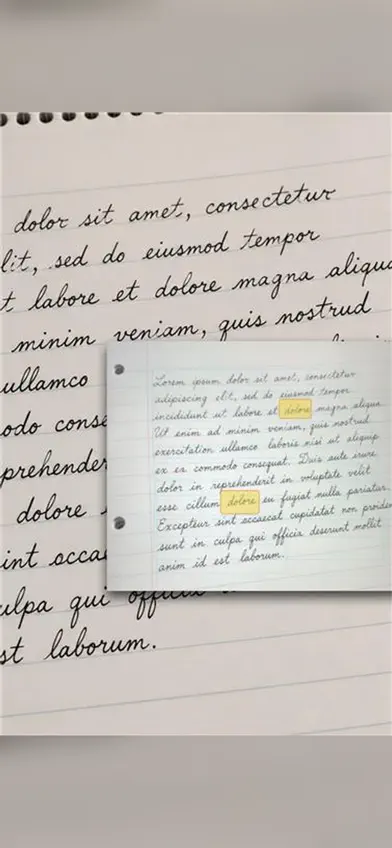 dolor sit amet, consectetur
lit, sed do eiusmod tempor
t labore et dolore magna aliqua
minim veniam, quis nostrud
ullamco
odo conse
prehender
dolore
int occa
ulpa qui
st laborum.
Lorem ipsum dolor sit amet, consectetur
adipiscing elit, sed do eiusmod tempor
incididunt ut labore et dolore magna aliqua
Ut enim ad minim veniam, quis nostrud
exercitation ullamco laboris nisi ut aliquip
ex commodo consequat. Duis aute
dolor in reprehenderit in voluptate velit
esse cillum dolore eu fugiat nulla pariatur.
Excepteur sint occaecat cupidatat non proiden
sunt in culpa qui officia deserunt mollit
anim id est laborum.